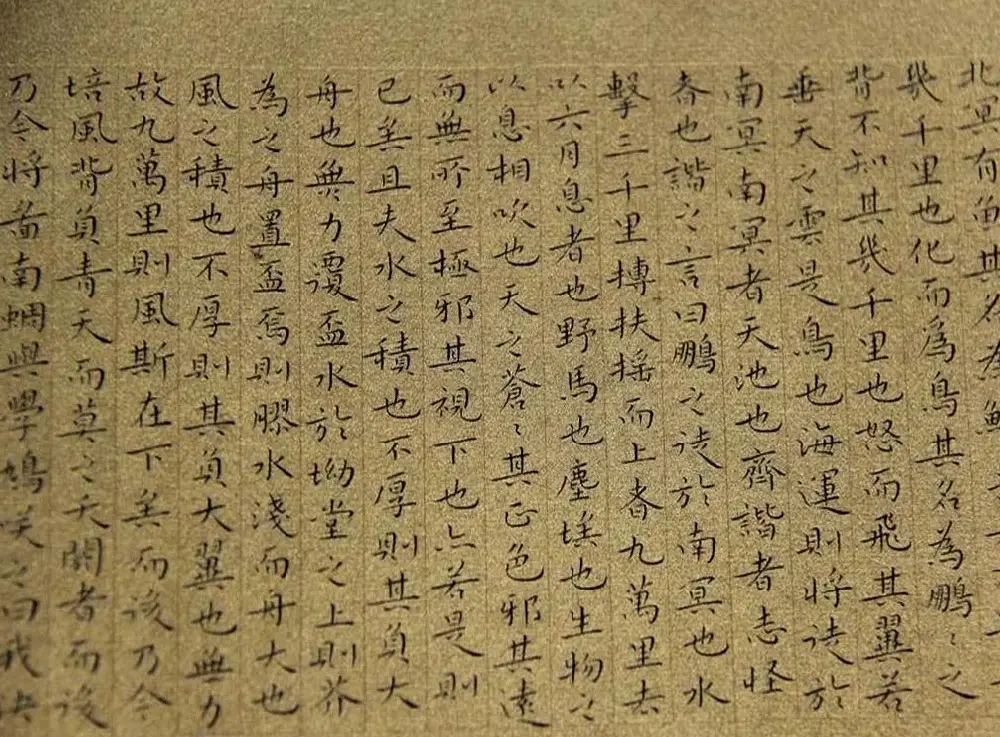 北冥有魚其名為鯤
幾千里也化而爲鳥其名為鵬〻之
背不知其幾千里也怒而飛其翼若
垂天之雲是鳥也海運則將徙於
南冥南冥者天池也齊諧者志怪
者也諧之言曰鵬之徙於南冥也水
擊三千里摶扶搖而上者九萬里去
以六月息者也野馬也塵埃也生物之
以息相吹也天之蒼〻其正色邪其遠
而無所至極邪其視下也亦若是則
已矣且夫水之積也不厚則其負大
舟也無力覆盃水於坳堂之上則芥
為之舟置盃焉則膠水淺而舟大也
風之積也不厚則其負大翼也無力
故九萬里則風斯在下矣而後乃今
培風背負青天而莫之夭閼者而後
乃今將啚南蜩與學鳩咲之曰我決